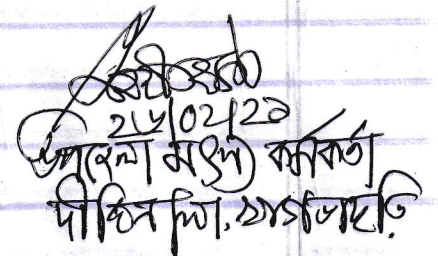 ২৬/০২/২১
উপজেলা মৎস্য কর্মকর্তা
দীঘিনালা, খাগড়াছড়ি